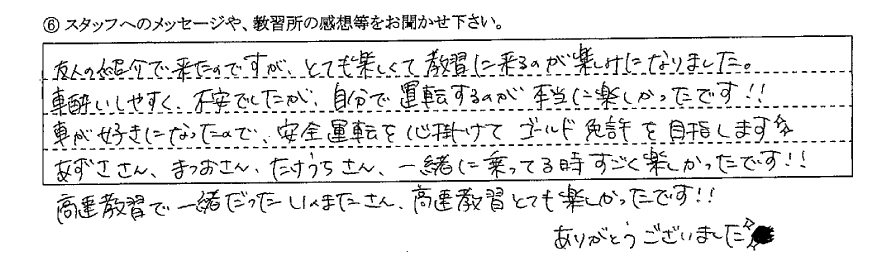 ⑥ スタッフへのメッセージや、教習所の感想等をお聞かせ下さい。
友人の紹介で来たのですが、とても楽しくて教習に来るのが楽しみになりました。
車酔いしやすく、不安でしたが、自分で運転するのが本当に楽しかったです!!
車が好きになったので、安全運転を心掛けてゴールド免許を目指します☆
あずささん、まつおさん、たけうちさん、一緒に乗ってる時すごく楽しかったです!!
高速教習で一緒だったしんまたさん、高速教習とても楽しかったです!!
ありがとうございました